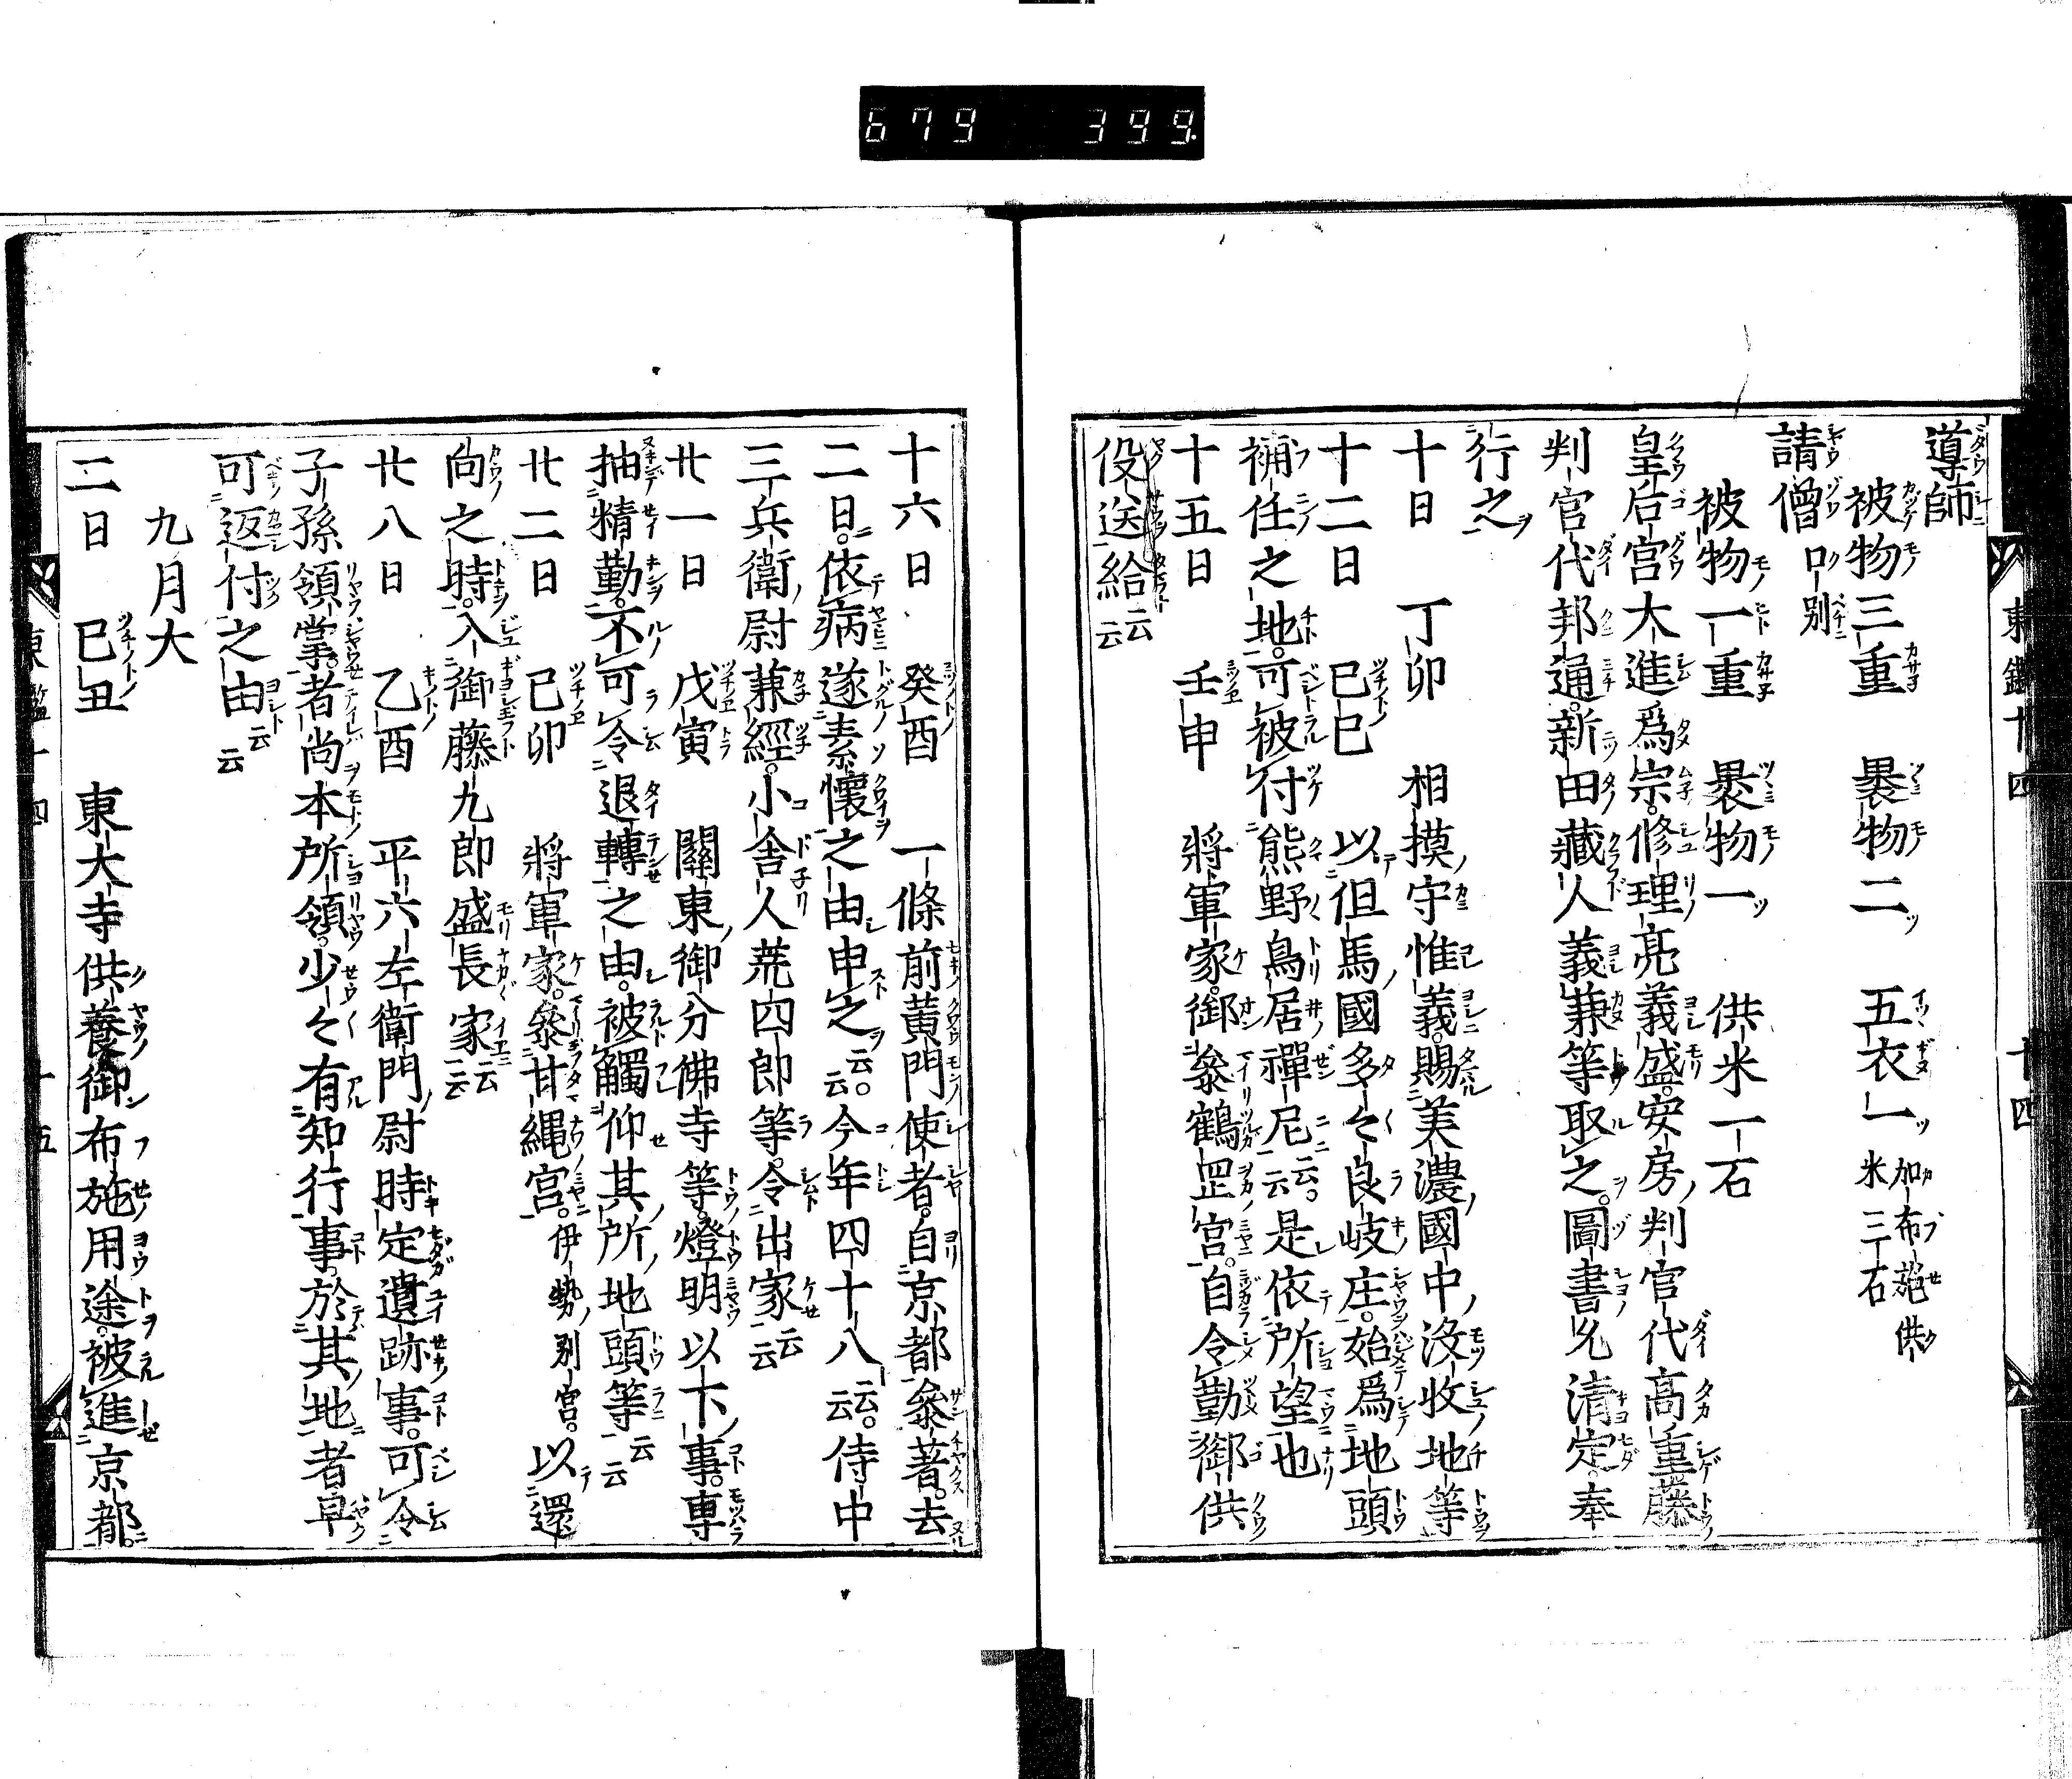 679 399.
導師
被物三重 褁物二 五衣一 加布施供米三石
請僧口別
被物一重 褁物一 供米一石
皇后宮大進爲宗。修理亮義盛。安房判官代高重藤
判官代邦通。新田藏人義兼等取之。圖書允清定奉
行之
十日 丁卯 相摸守惟義。賜美濃國中沒收地等
十二日 巳巳 以但馬國多々良岐庄。始爲地頭
補任之地。可被付熊野鳥居禪尼云云。是依所望也
十五日 壬申 將軍家。御叅鶴罡宮。自令勤御供
役送給云云
東鑑十四 十四
十六日 癸酉 一條前黃門使者。自京都叅著。去
二日。依病遂素懷之由申之云云。今年四十八云云。侍中
三兵衛尉兼經。小舎人荒四郎等。令出家云云
廿一日 戊寅 關東御分佛寺等。燈明以下事。専
抽精勤。不可令退轉之由。被觸仰其所地頭等云云
廿二日 己卯 將軍家。叅甘縄宮。伊勢別宮。以還
向之時。入御藤九郎盛長家云云
廿八日 乙酉 平六左衛門尉時定遺跡事。可令
子孫領掌。者尚本所領。少々有知行事。於其地者早
可返付之由云云
九月大
二日 巳丑 東大寺供養御布施用途。被進京都。
東鑑十四 十五